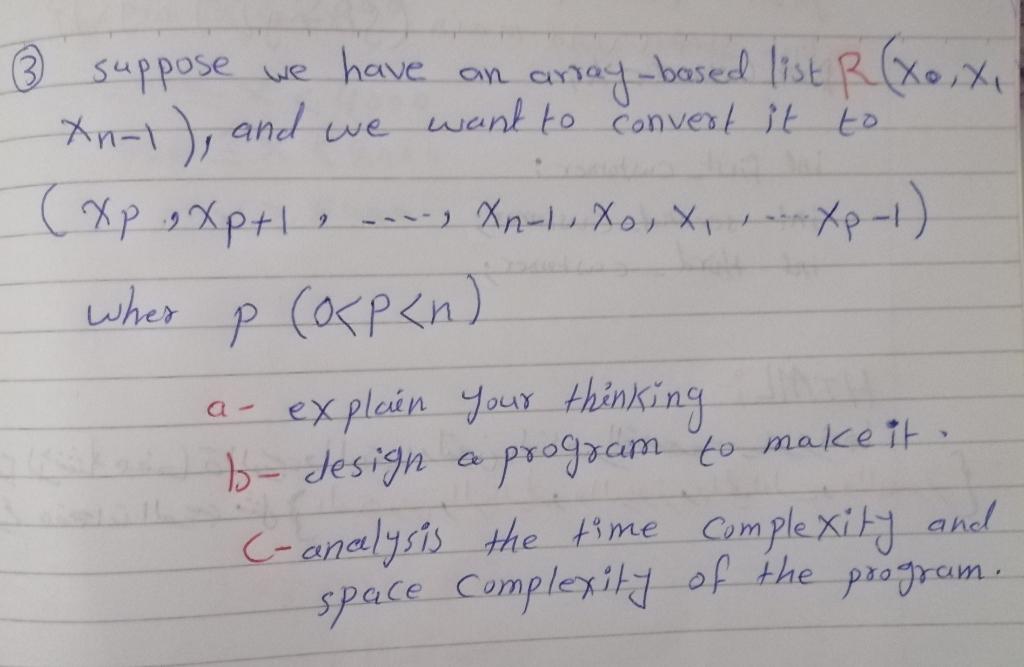 ③ suppose we have an array-based list R(x0, x1
xn-1), and we want to convert it to
(xp, xp+1, ----, xn-1, x0, x1, ---xp-1)
wher p (0<p<n)
a- explain your thinking
b- design a program to make it.
c- analysis the time complexity and
space complexity of the program.